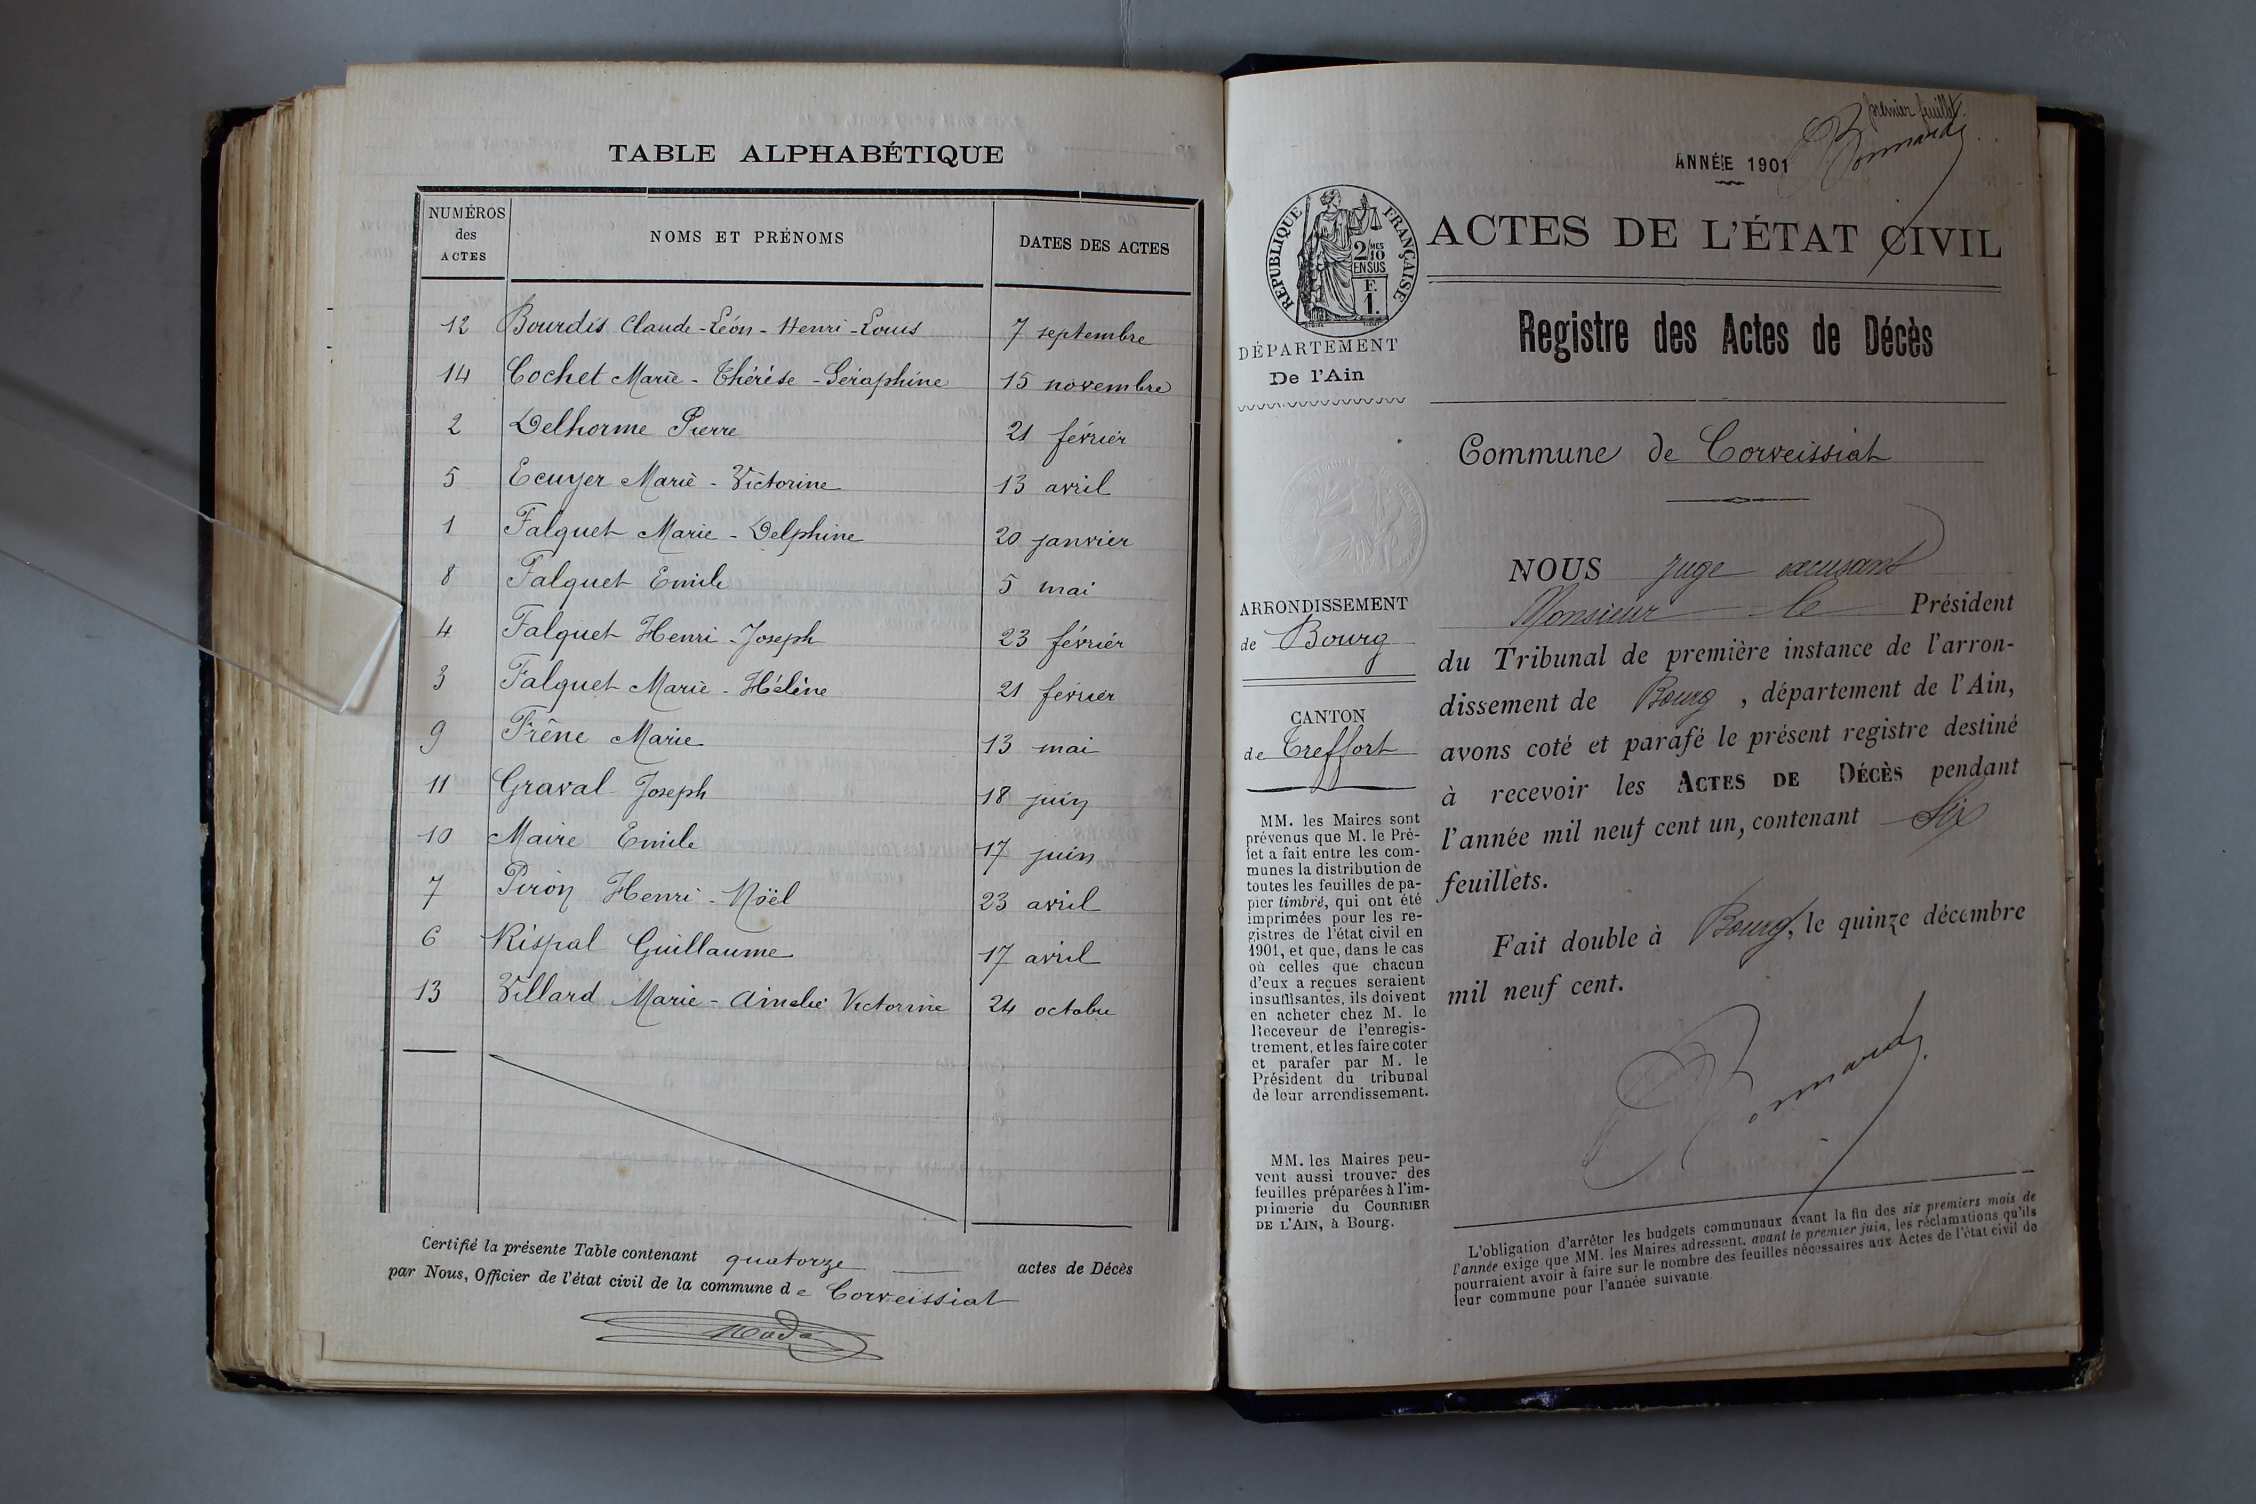 TABLE ALPHABÉTIQUE
NUMÉROS des ACTES
NOMS ET PRÉNOMS
DATES DES ACTES
12 Bourdis Claude-Léon-Henri-Louis 7 septembre
14 Cochet Marie-Thérèse-Séraphine 15 novembre
2 Delhorme Pierre 21 février
5 Ecuyer Marie-Victorine 13 avril
1 Falguet Marie-Delphine 20 janvier
8 Falguet Emile 5 mai
4 Falguet Henri-Joseph 23 février
3 Falguet Marie-Hélène 21 février
9 Frêne Marie 13 mai
11 Graval Joseph 18 juin
10 Maire Emile 17 juin
7 Piron Henri-Noël 23 avril
6 Rispal Guillaume 17 avril
13 Villard Marie-Amelie Victorine 24 octobre
Certifié la présente Table contenant quatorze actes de Décès
par Nous, Officier de l'état civil de la commune de Corveissiat
premier feuillet.
Bonnard
ANNÉE 1901
ACTES DE L'ÉTAT CIVIL
RÉPUBLIQUE FRANÇAISE
2/10MES
EN SUS
F.
1.
DÉPARTEMENT
De l'Ain
Registre des Actes de Décès
Commune de Corveissiat
ARRONDISSEMENT
de Bourg
CANTON
de Treffort
MM. les Maires sont
prévenus que M. le Pré-
fet a fait entre les com-
munes la distribution de
toutes les feuilles de pa-
pier timbré, qui ont été
imprimées pour les re-
gistres de l'état civil en
1901, et que, dans le cas
où celles que chacun
d'eux a reçues seraient
insuffisantes, ils doivent
en acheter chez M. le
Receveur de l'enregis-
trement, et les faire coter
et parafer par M. le
Président du tribunal
de leur arrondissement.
MM. les Maires peu-
vent aussi trouver des
feuilles préparées à l'im-
primerie du COURRIER
DE L'AIN, à Bourg.
NOUS juge excusant
Monsieur le Président
du Tribunal de première instance de l'arron-
dissement de Bourg, département de l'Ain,
avons coté et parafé le présent registre destiné
à recevoir les ACTES DE DÉCÈS pendant
l'année mil neuf cent un, contenant Six
feuillets.
Fait double à Bourg, le quinze décembre
mil neuf cent.
Bonnard
L'obligation d'arrêter les budgets communaux avant la fin des six premiers mois de
l'année exige que MM. les Maires adressent, avant le premier juin, les réclamations qu'ils
pourraient avoir à faire sur le nombre des feuilles nécessaires aux Actes de l'état civil de
leur commune pour l'année suivante